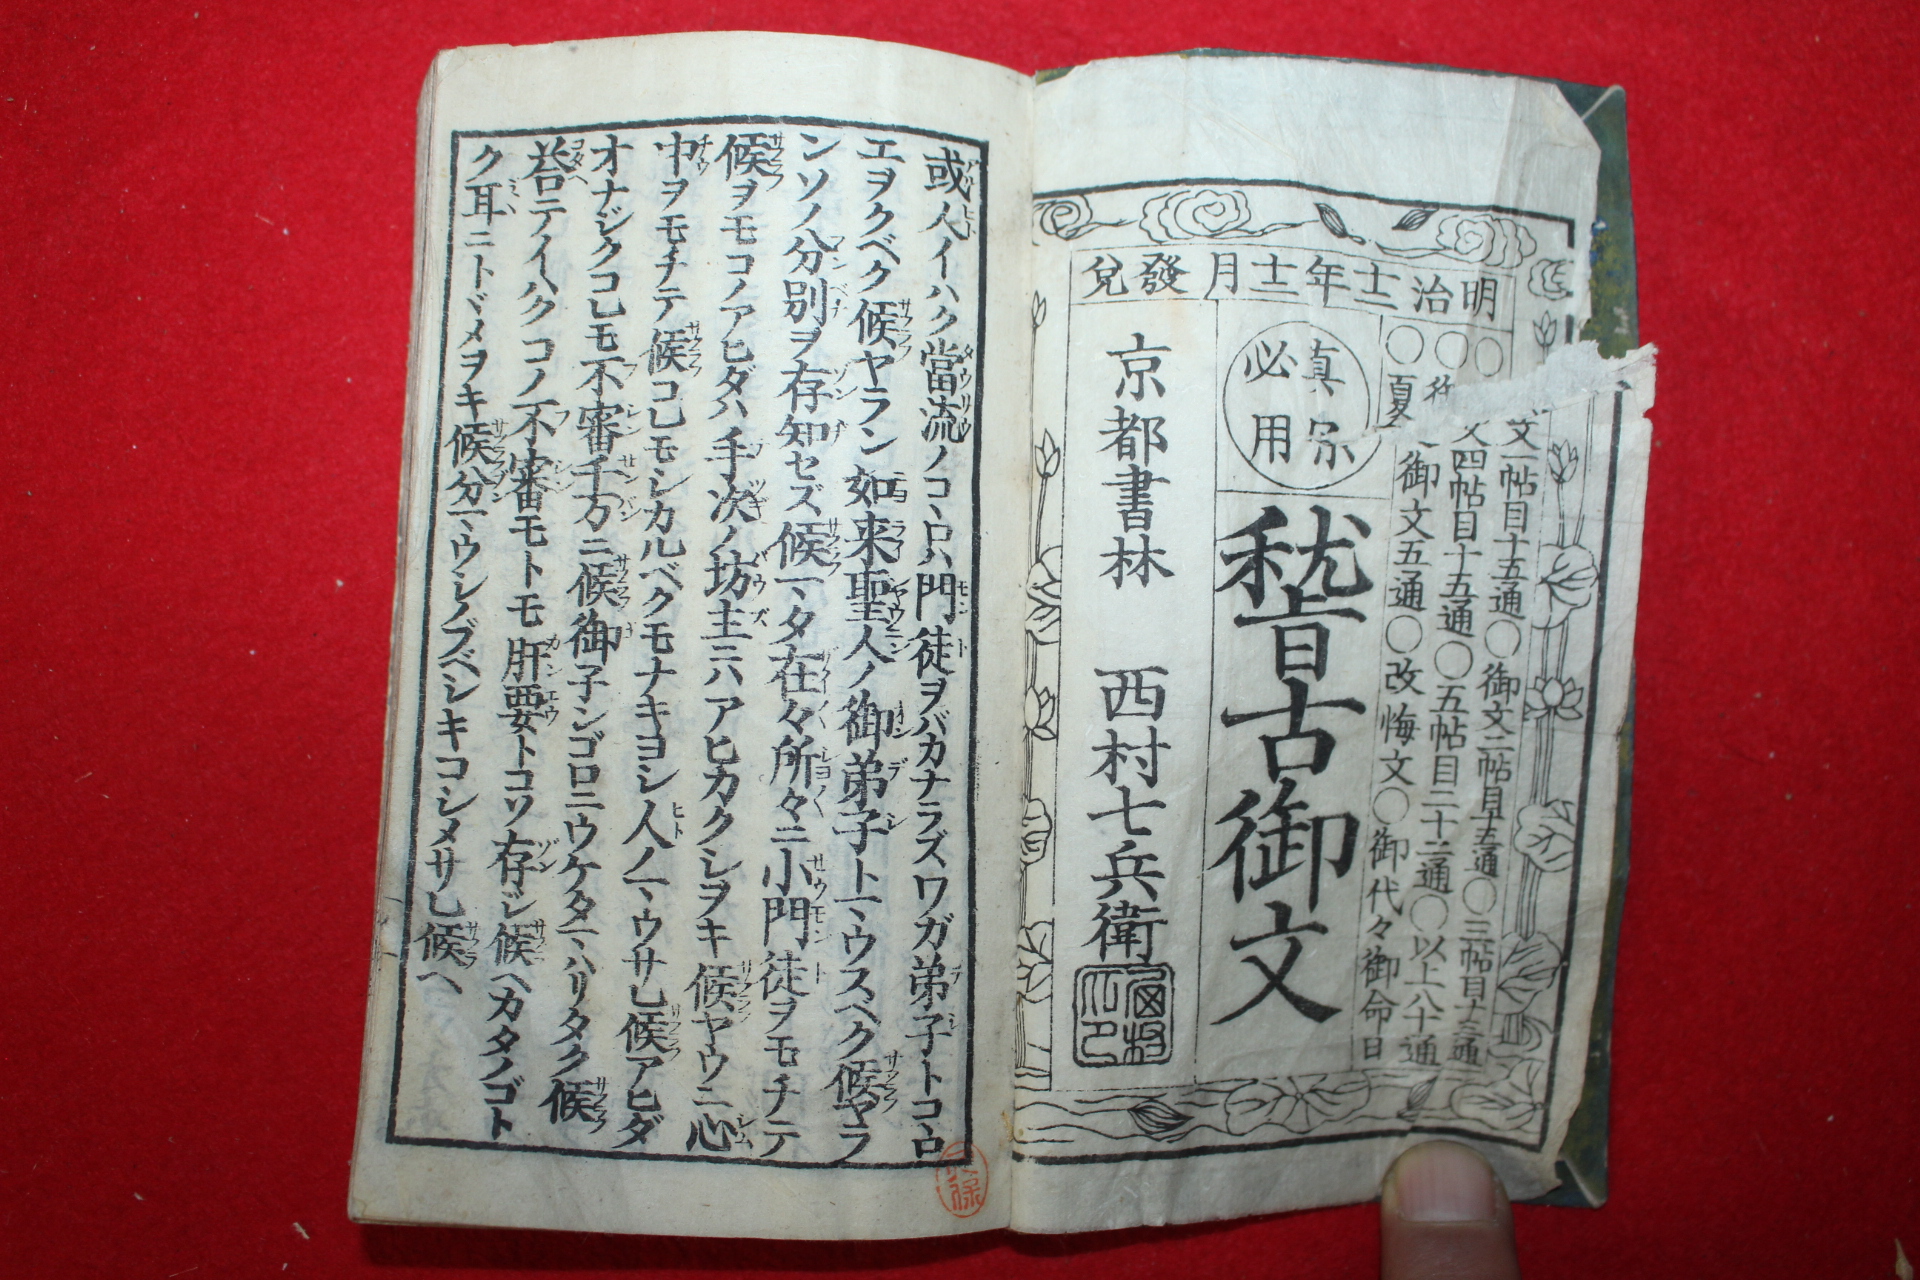 明治十一年十一月發兌
文一帖目十五通〇御文二帖目十五通〇三帖目十三通
文四帖目十五通〇五帖目二十二通〇以上八十通
夏 御文五通〇改悔文〇御代々御命日
真宗
必用
稽古御文
京都書林 西村七兵衛
或人イハクタウ流ノコヽロハ門徒ヲバカナラズワガ弟子トコヽロ
エヲクベク候ヤラン如来聖人ノ御弟子トマウスベク候ヤラ
ンソノ分別ヲ存知セズ候マタ在々所々ニ小門徒ヲモチテ
候ヲモコノアヒダハ手次ノ坊主ニハアヒカクシヲキ候ヤウニ心
中ヲモチテ候コレモシカルベクモナキヨシ人ノマウサレ候アヒダ
オナジクコレモ不審千万ニ候御子ンゴロニウケタマハリタク候
荅テイハクコノ不審モトモ肝要トコソ存ジ候ヘカタノゴト
ク耳ニトヾメヲキ候分マウシノブベシキコシメサレ候ヘ